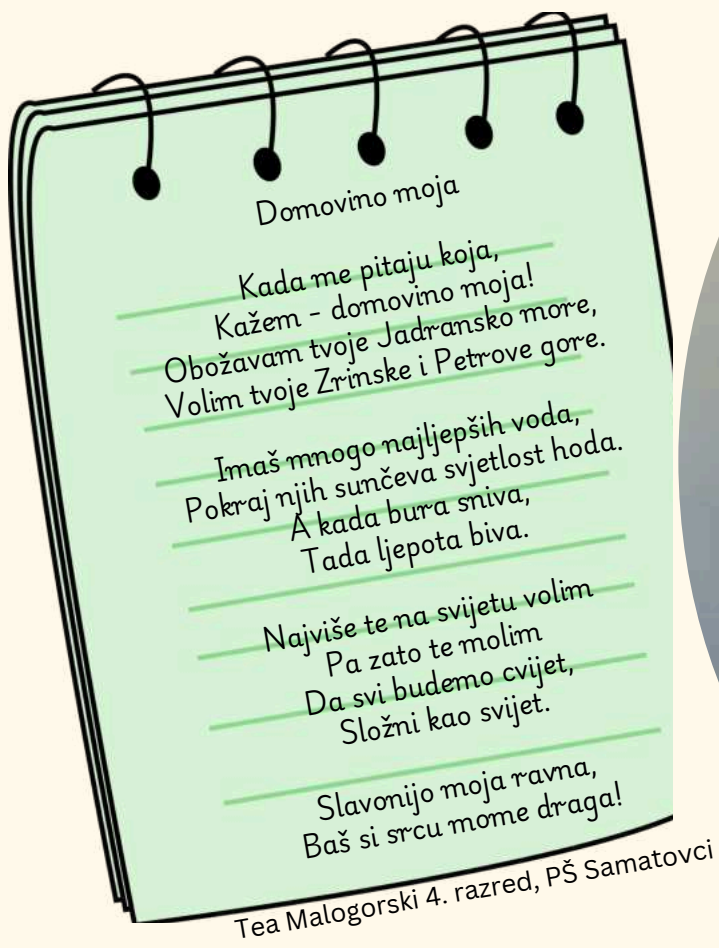 Domovino moja
Kada me pitaju koja,
Kažem - domovino moja!
Obožavam tvoje Jadransko more,
Volim tvoje Zrinske i Petrove gore.
Imaš mnogo najljepših voda,
Pokraj njih sunčeva svjetlost hoda.
A kada bura sniva,
Tada ljepota biva.
Najviše te na svijetu volim
Pa zato te molim
Da svi budemo cvijet,
Složni kao svijet.
Slavonijo moja ravna,
Baš si srcu mome draga!
Tea Malogorski 4. razred, PŠ Samatovci